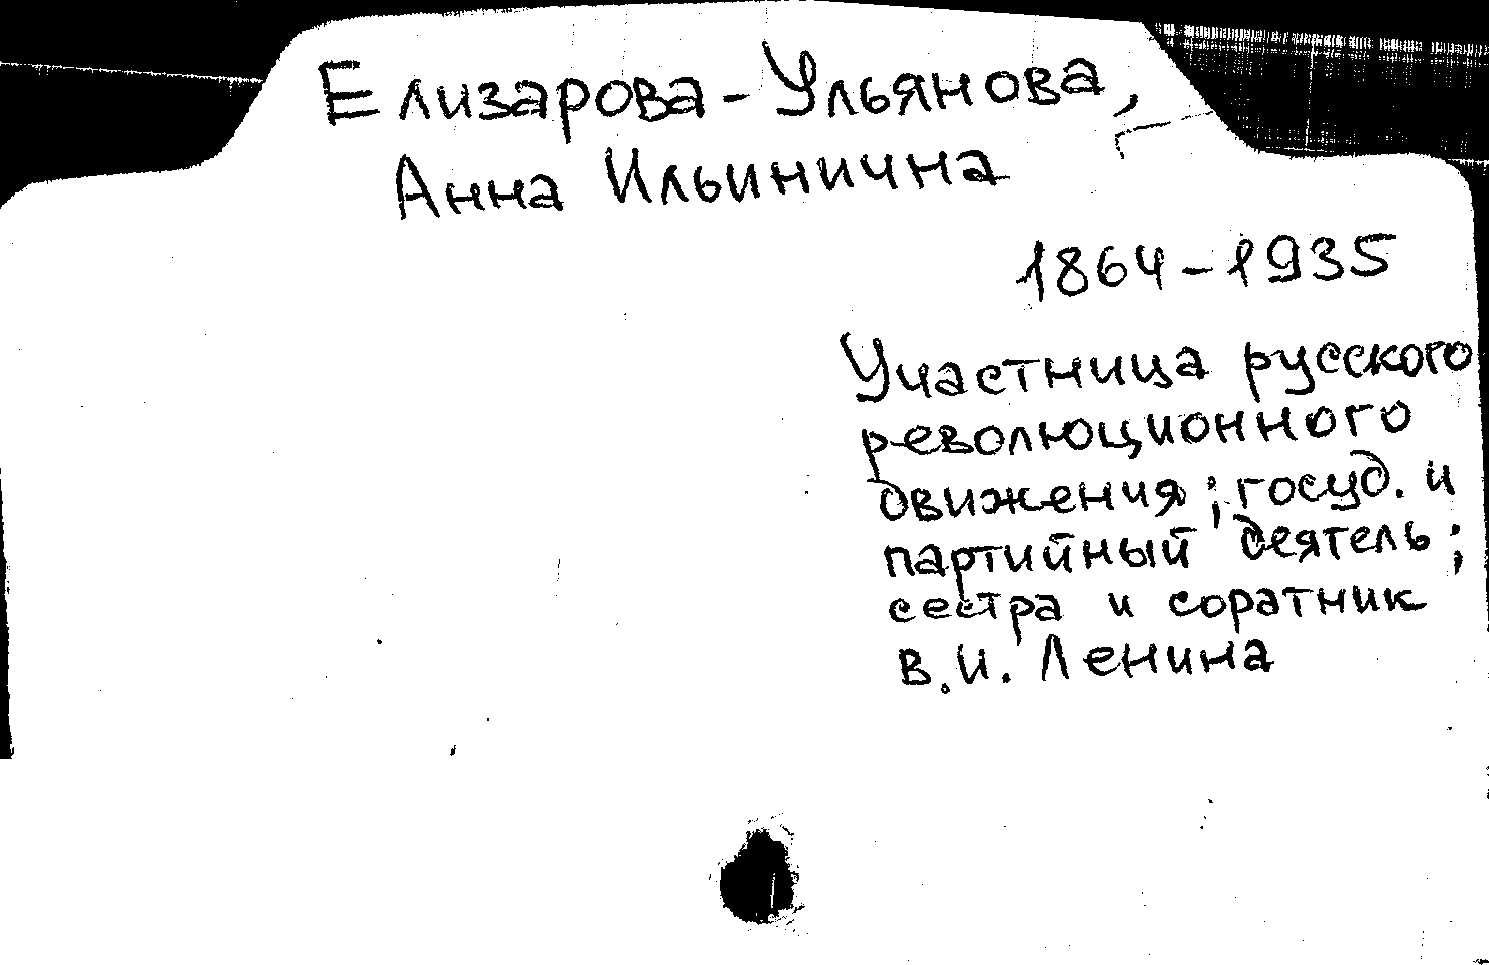 Елизарова-Ульянова,
Анна Ильинична
1864-1935
Участница русского
революционного
движения; госуд. и
партийный деятель;
сестра и соратник
В.И. Ленина